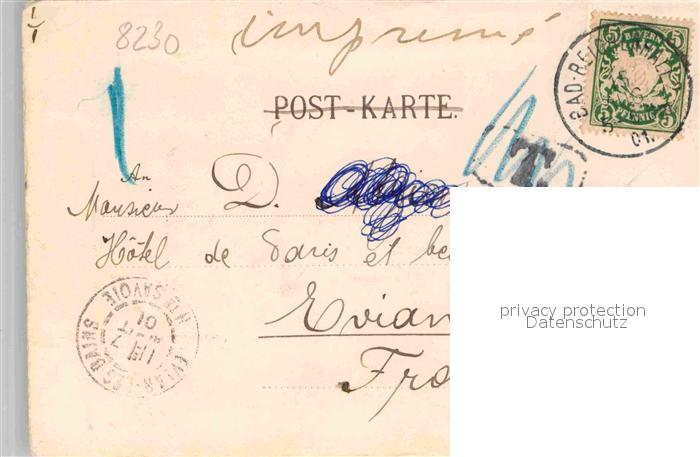 8230
imprimé
POST-KARTE.
5 BAYERN 5
5 PFENNIG 5
BAD-REICHENHALL
01.
T
An
Monsieur D.
Hôtel de Paris et
Evian
EVIAN-LES-BAINS
HTE SAVOIE
01
privacy protection
Datenschutz